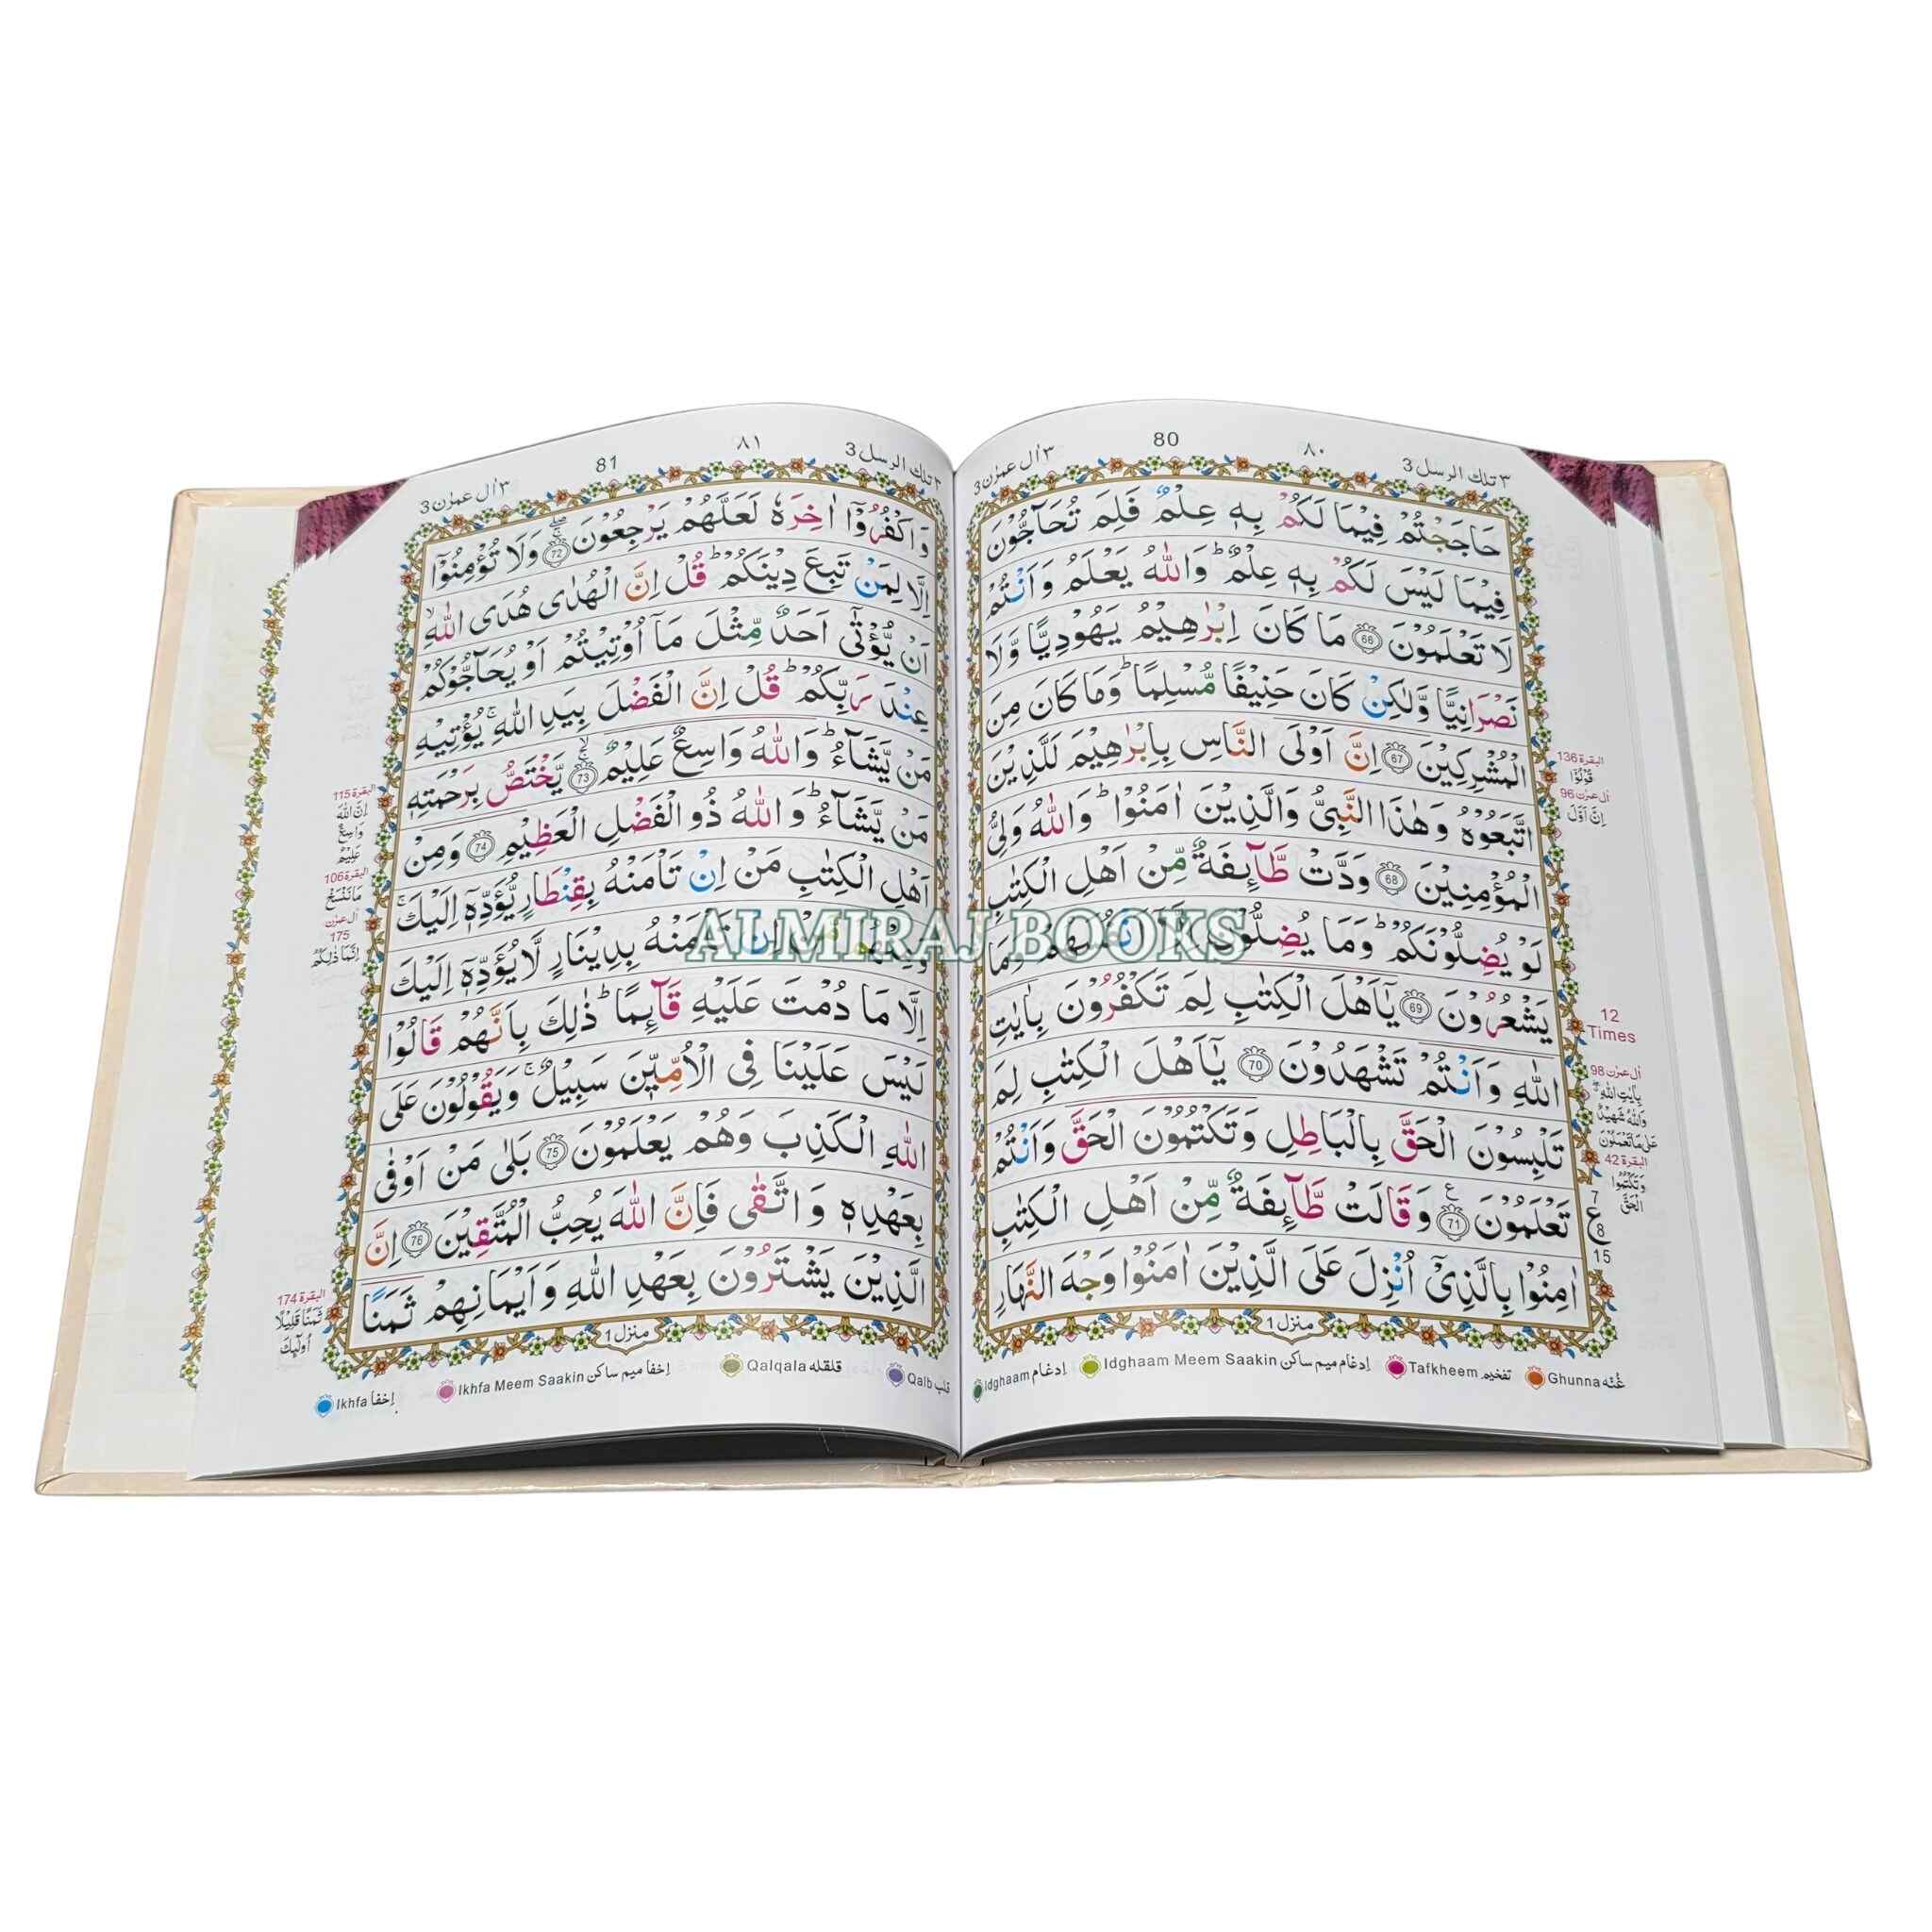 ٣ تلك الرسل 3
٨٠
80
٣ اٰل عمرٰن 3
حَاجَجْتُمْ فِيْمَا لَكُمْ بِهٖ عِلْمٌ فَلِمَ تُحَآجُّوْنَ
فِيْمَا لَيْسَ لَكُمْ بِهٖ عِلْمٌ ؕ وَاللّٰهُ يَعْلَمُ وَاَنْتُمْ
لَا تَعْلَمُوْنَ 66 مَا كَانَ اِبْرٰهِيْمُ يَهُوْدِيًّا وَّلَا
نَصْرَانِيًّا وَّلٰكِنْ كَانَ حَنِيْفًا مُّسْلِمًا ؕ وَمَا كَانَ مِنَ
الْمُشْرِكِيْنَ 67 اِنَّ اَوْلَى النَّاسِ بِاِبْرٰهِيْمَ لَلَّذِيْنَ
اتَّبَعُوْهُ وَهٰذَا النَّبِىُّ وَالَّذِيْنَ اٰمَنُوْا ؕ وَاللّٰهُ وَلِىُّ
الْمُؤْمِنِيْنَ 68 وَدَّتْ طَّآئِفَةٌ مِّنْ اَهْلِ الْكِتٰبِ
لَوْ يُضِلُّوْنَكُمْ ؕ وَمَا يُضِلُّوْنَ اِلَّآ اَنْفُسَهُمْ وَمَا
يَشْعُرُوْنَ 69 يٰٓاَهْلَ الْكِتٰبِ لِمَ تَكْفُرُوْنَ بِاٰيٰتِ
اللّٰهِ وَاَنْتُمْ تَشْهَدُوْنَ 70 يٰٓاَهْلَ الْكِتٰبِ لِمَ
تَلْبِسُوْنَ الْحَقَّ بِالْبَاطِلِ وَتَكْتُمُوْنَ الْحَقَّ وَاَنْتُمْ
تَعْلَمُوْنَ 71 وَقَالَتْ طَّآئِفَةٌ مِّنْ اَهْلِ الْكِتٰبِ
اٰمِنُوْا بِالَّذِىْٓ اُنْزِلَ عَلَى الَّذِيْنَ اٰمَنُوْا وَجْهَ النَّهَارِ
منزل 1
البقرة 136
قُوْلُوْٓا
اٰل عمرٰن 96
اِنَّ اَوَّلَ
12
Times
اٰل عمرٰن 98
بِاٰيٰتِ اللّٰهِ
وَاللّٰهُ شَهِيْدٌ
عَلٰى مَا تَعْمَلُوْنَ
البقرة 42
وَتَكْتُمُوا
الْحَقَّ
7
ع
8
15
Ghunna غُنّه
Tafkheem تفخيم
Idghaam Meem Saakin اِدغام ميم ساكن
Idghaam اِدغام
٣ تلك الرسل 3
٨١
81
٣ اٰل عمرٰن 3
وَاكْفُرُوْٓا اٰخِرَهٗ لَعَلَّهُمْ يَرْجِعُوْنَ 72 وَلَا تُؤْمِنُوْٓا
اِلَّا لِمَنْ تَبِعَ دِيْنَكُمْ ؕ قُلْ اِنَّ الْهُدٰى هُدَى اللّٰهِ ۙ
اَنْ يُّؤْتٰٓى اَحَدٌ مِّثْلَ مَآ اُوْتِيْتُمْ اَوْ يُحَآجُّوْكُمْ
عِنْدَ رَبِّكُمْ ؕ قُلْ اِنَّ الْفَضْلَ بِيَدِ اللّٰهِ ۚ يُؤْتِيْهِ
مَنْ يَّشَآءُ ؕ وَاللّٰهُ وَاسِعٌ عَلِيْمٌ 73 يَّخْتَصُّ بِرَحْمَتِهٖ
مَنْ يَّشَآءُ ؕ وَاللّٰهُ ذُو الْفَضْلِ الْعَظِيْمِ 74 وَمِنْ
اَهْلِ الْكِتٰبِ مَنْ اِنْ تَاْمَنْهُ بِقِنْطَارٍ يُّؤَدِّهٖٓ اِلَيْكَ ۚ
وَمِنْهُمْ مَّنْ اِنْ تَاْمَنْهُ بِدِيْنَارٍ لَّا يُؤَدِّهٖٓ اِلَيْكَ
اِلَّا مَا دُمْتَ عَلَيْهِ قَآئِمًا ؕ ذٰلِكَ بِاَنَّهُمْ قَالُوْا
لَيْسَ عَلَيْنَا فِى الْاُمِّيّٖنَ سَبِيْلٌ ۚ وَيَقُوْلُوْنَ عَلَى
اللّٰهِ الْكَذِبَ وَهُمْ يَعْلَمُوْنَ 75 بَلٰى مَنْ اَوْفٰى
بِعَهْدِهٖ وَاتَّقٰى فَاِنَّ اللّٰهَ يُحِبُّ الْمُتَّقِيْنَ 76 اِنَّ
الَّذِيْنَ يَشْتَرُوْنَ بِعَهْدِ اللّٰهِ وَاَيْمَانِهِمْ ثَمَنًا
منزل 1
البقرة 115
اِنَّ اللّٰهَ
وَاسِعٌ
عَلِيْمٌ
البقرة 106
مَا نَنْسَخْ
اٰل عمرٰن
175
اِنَّمَا ذٰلِكُمُ
البقرة 174
ثَمَنًا قَلِيْلًا
اُولٰٓئِكَ
Qalb قلب
Qalqala قلقله
Ikhfa Meem Saakin اِخفا ميم ساكن
Ikhfa اِخفا
ALMIRAJ BOOKS